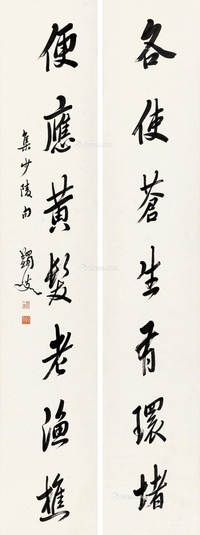 各使蒼生有環堵
便應黃髮老漁樵
集少陵句
蠲叟